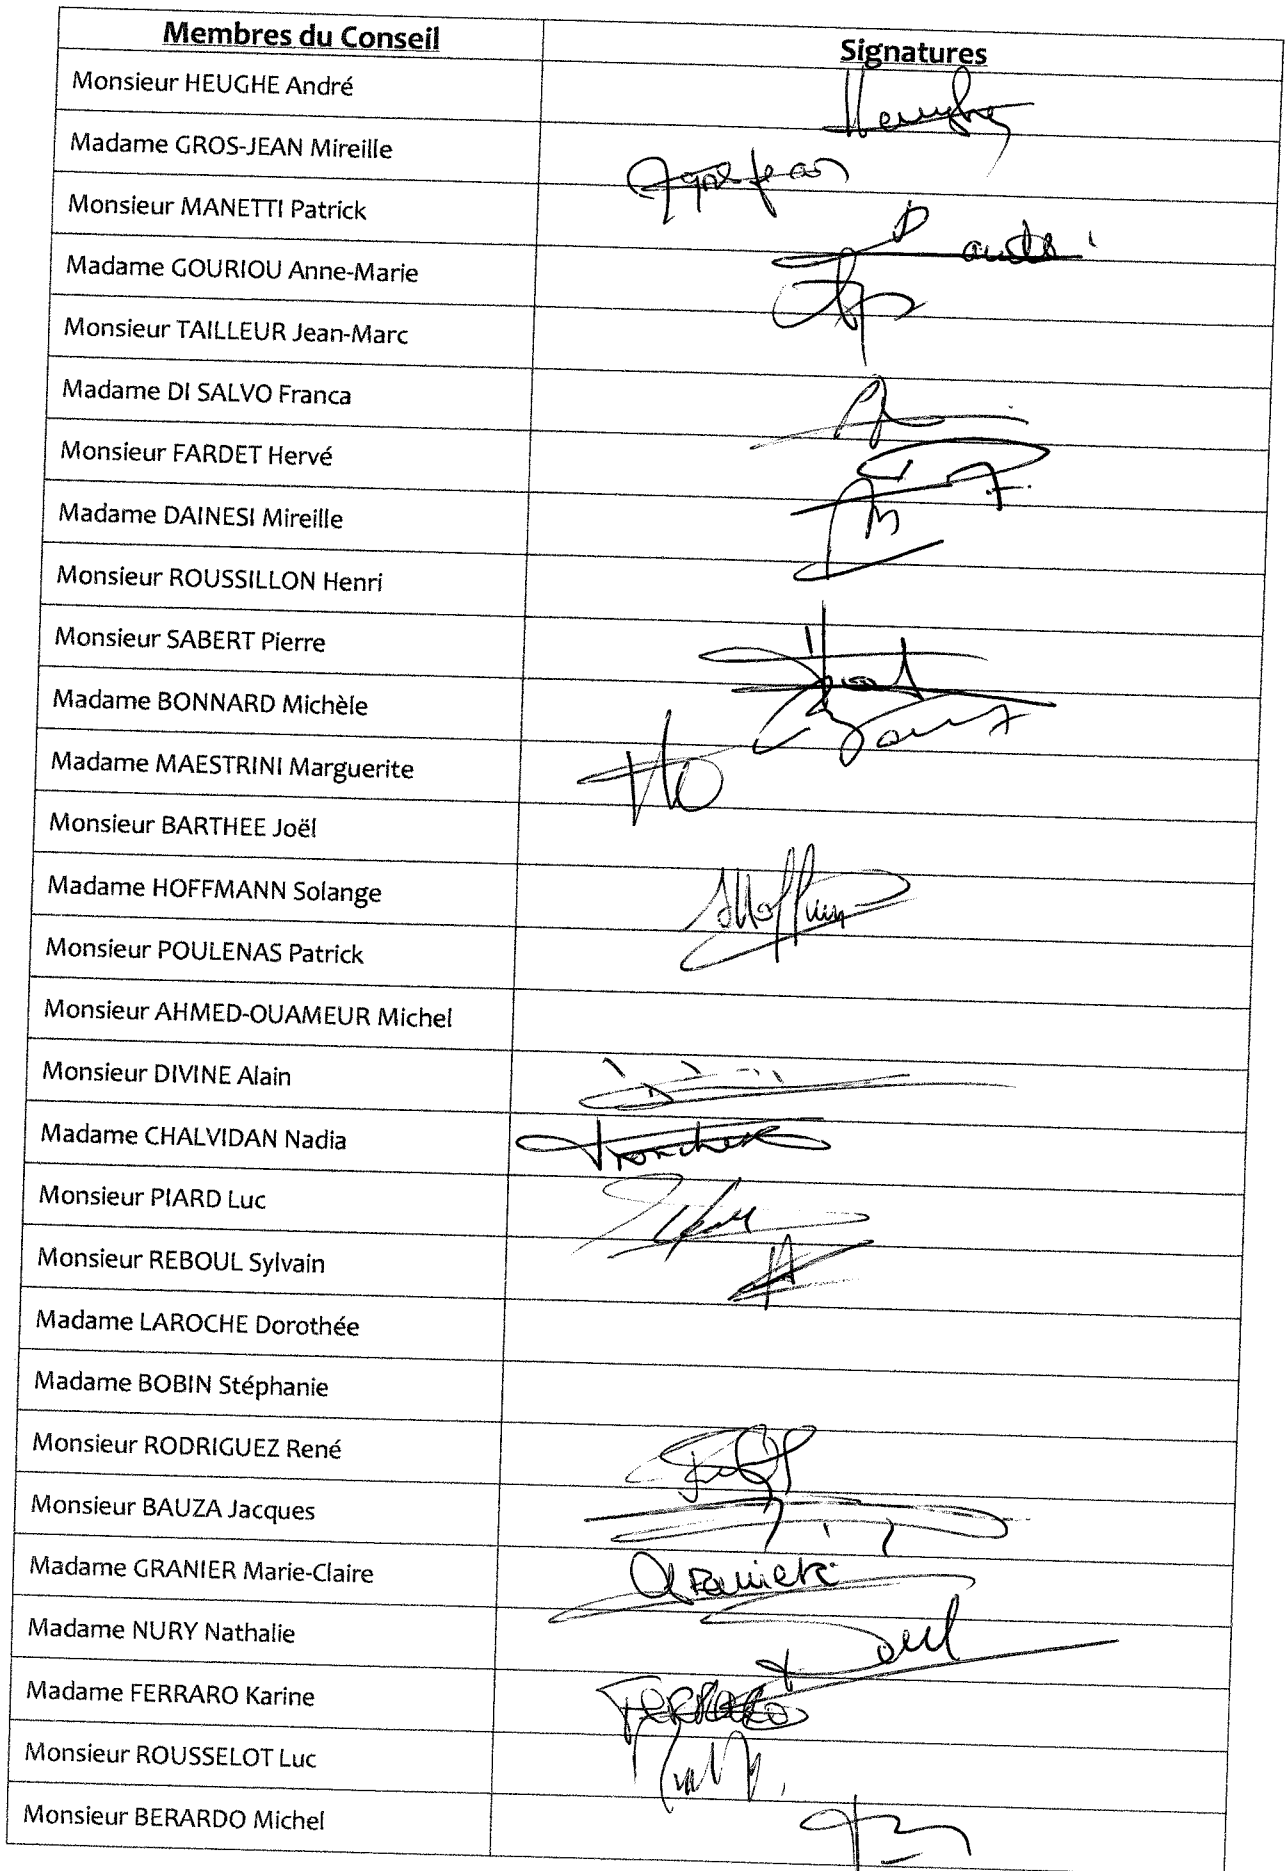 Membres du Conseil Signatures
Monsieur HEUGHE André
Madame GROS-JEAN Mireille
Monsieur MANETTI Patrick
Madame GOURIOU Anne-Marie
Monsieur TAILLEUR Jean-Marc
Madame DI SALVO Franca
Monsieur FARDET Hervé
Madame DAINESI Mireille
Monsieur ROUSSILLON Henri
Monsieur SABERT Pierre
Madame BONNARD Michèle
Madame MAESTRINI Marguerite
Monsieur BARTHEE Joël
Madame HOFFMANN Solange
Monsieur POULENAS Patrick
Monsieur AHMED-OUAMEUR Michel
Monsieur DIVINE Alain
Madame CHALVIDAN Nadia
Monsieur PIARD Luc
Monsieur REBOUL Sylvain
Madame LAROCHE Dorothée
Madame BOBIN Stéphanie
Monsieur RODRIGUEZ René
Monsieur BAUZA Jacques
Madame GRANIER Marie-Claire
Madame NURY Nathalie
Madame FERRARO Karine FERRARO
Monsieur ROUSSELOT Luc
Monsieur BERARDO Michel